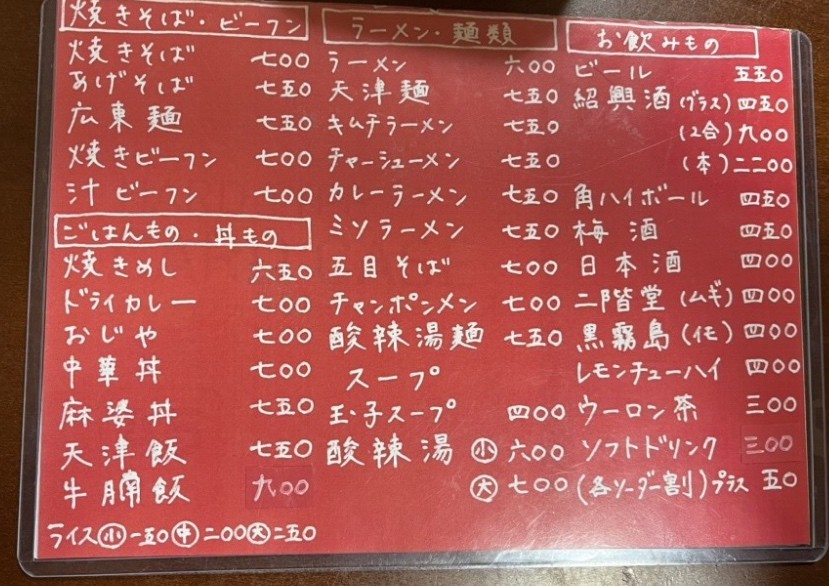 焼きそば・ビーフン
焼きそば 七〇〇
あげそば 七五〇
広東麺 七五〇
焼きビーフン 七〇〇
汁ビーフン 七〇〇
ごはんもの・丼もの
焼きめし 六五〇
ドライカレー 七〇〇
おじや 七〇〇
中華丼 七〇〇
麻婆丼 七五〇
天津飯 七五〇
牛腩飯 九〇〇
ライス㊙小 一五〇 ㊥ 二〇〇 大 二五〇
ラーメン・麺類
ラーメン 六〇〇
天津麺 七五〇
キムチラーメン 七五〇
チャーシューメン 七五〇
カレーラーメン 七五〇
ミソラーメン 七五〇
五目そば 七〇〇
チャンポンメン 七〇〇
酸辣湯麺 七五〇
スープ
玉子スープ 四〇〇
酸辣湯 小 六〇〇
大 七〇〇
お飲みもの
ビール 五五〇
紹興酒(グラス) 四五〇
(2合) 九〇〇
(本) 二二〇〇
角ハイボール 四五〇
梅酒 四五〇
日本酒 四〇〇
二階堂(ムギ) 四〇〇
黒霧島(イモ) 四〇〇
レモンチューハイ 四〇〇
ウーロン茶 三〇〇
ソフトドリンク 三〇〇
(各ソーダー割)プラス 五〇